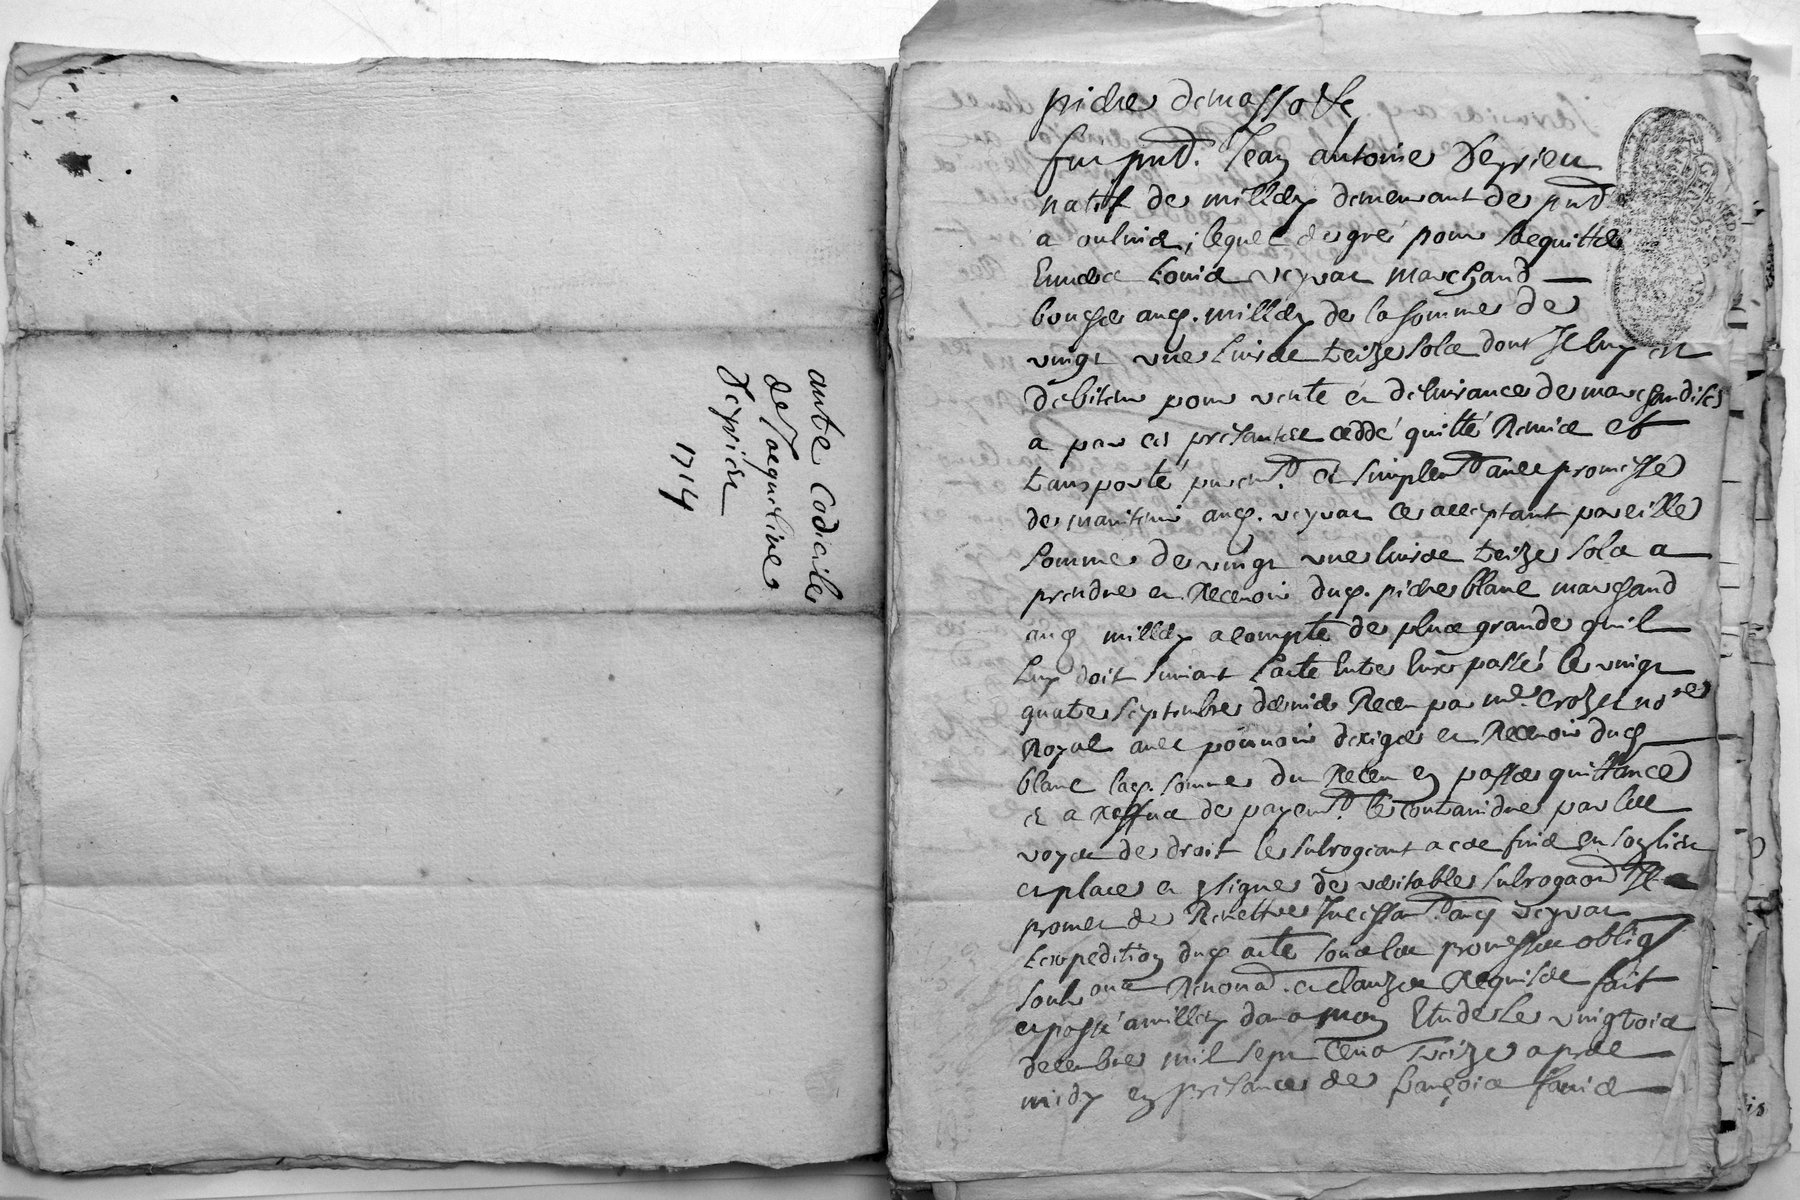 aute Codicile
de Jaequeline
Veyrieu
1714
fut pnt. Jean antoine Veyrieu
natif de milley demeurant de pnt
a lequel de gré pour
Louis veyvar marchand
auq. milley de la somme de
vingt une livres treize sols dont Il luy est
debiteur pour vente et delivrance de marchandises
a par ces presantes ceddé quitté Remis et
transporté purem.t et simplem.t avec promesse
de maintenir auq. veyvar ce acceptant pareille
somme de vingt une livres treize sols a
prendre et Recevoir duq. blanc marchand
auq milley a compte de plus grande quil
luy doit suivant l'acte entre eux passé le vingt
quatre septembre dernier Receu par me. crozet nore
Royal avec pouvoir dexiger et Recevoir duq
blanc laq. somme du Receu en passer quittance
et a Reffus de payem.t le contraindre par les
voyes de droit le subrogeant a ces fins en son lieu
et place et signe de veritable subrogaon Il a
promet de Remettre Incessam.t auq veyvar
Lexpedition duq acte sous les promesses oblig
soub.ons Renona.on et clauzes Requises fait
et passé a milley dans mon Etude le vingtrois
decembre mil sept cens treize apres
midy en presances de françois